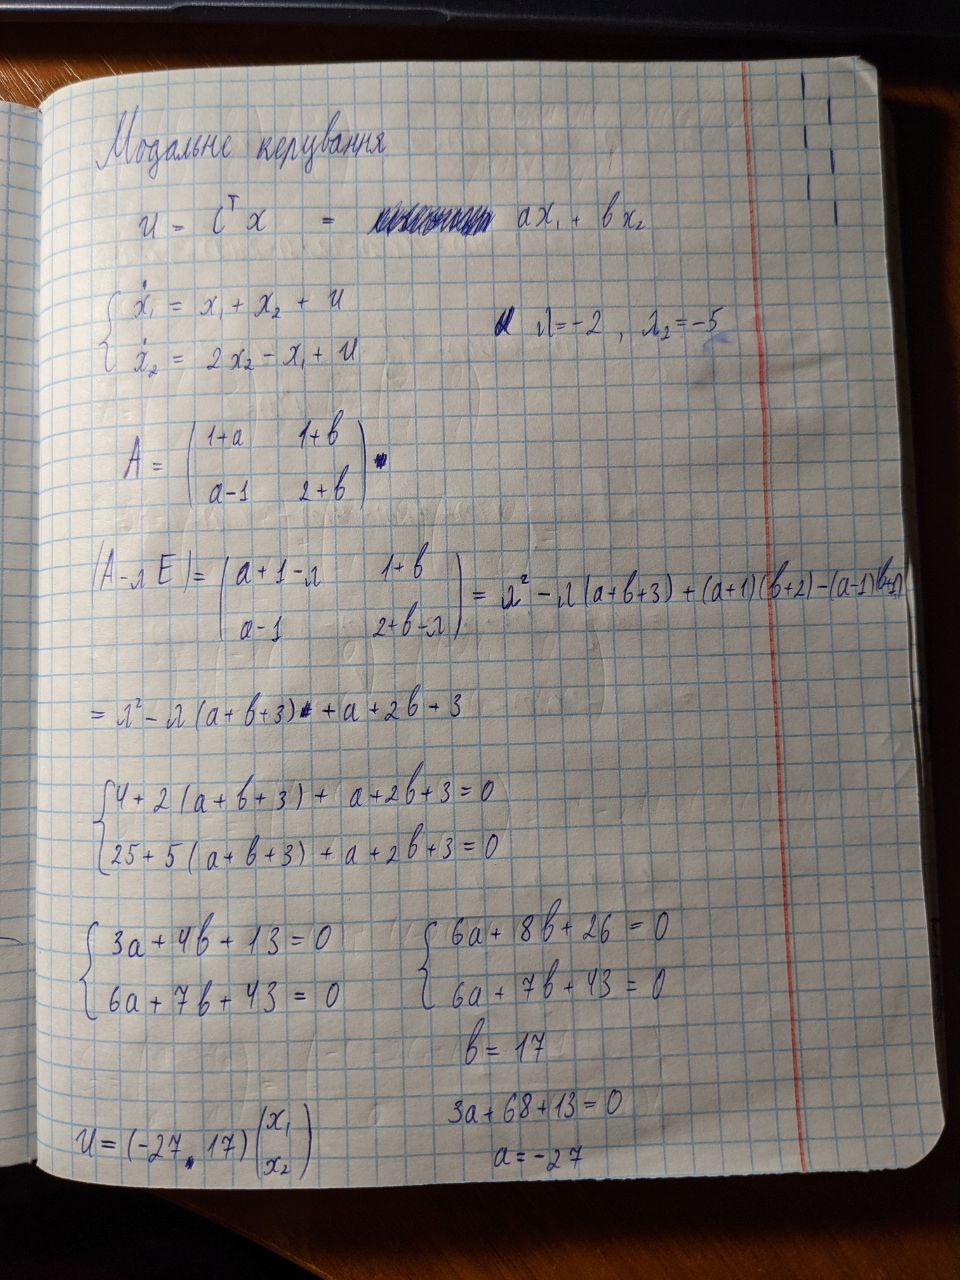 Модальне керування
u = C^T x = ax₁ + bx₂
ẋ₁ = x₁ + x₂ + u
λ = -2 , λ₂ = -5
ẋ₂ = 2x₂ - x₁ + u
A = ( 1+a 1+b
a-1 2+b )
|A - λE| = ( a+1-λ 1+b
a-1 2+b-λ ) = λ² - λ(a+b+3) + (a+1)(b+2) - (a-1)(b+1)
= λ² - λ(a+b+3) + a + 2b + 3
{ 4 + 2(a+b+3) + a+2b+3 = 0
25 + 5(a+b+3) + a+2b+3 = 0
{ 3a + 4b + 13 = 0
6a + 7b + 43 = 0
{ 6a + 8b + 26 = 0
6a + 7b + 43 = 0
b = 17
3a + 68 + 13 = 0
a = -27
u = (-27, 17) ( x₁
x₂ )